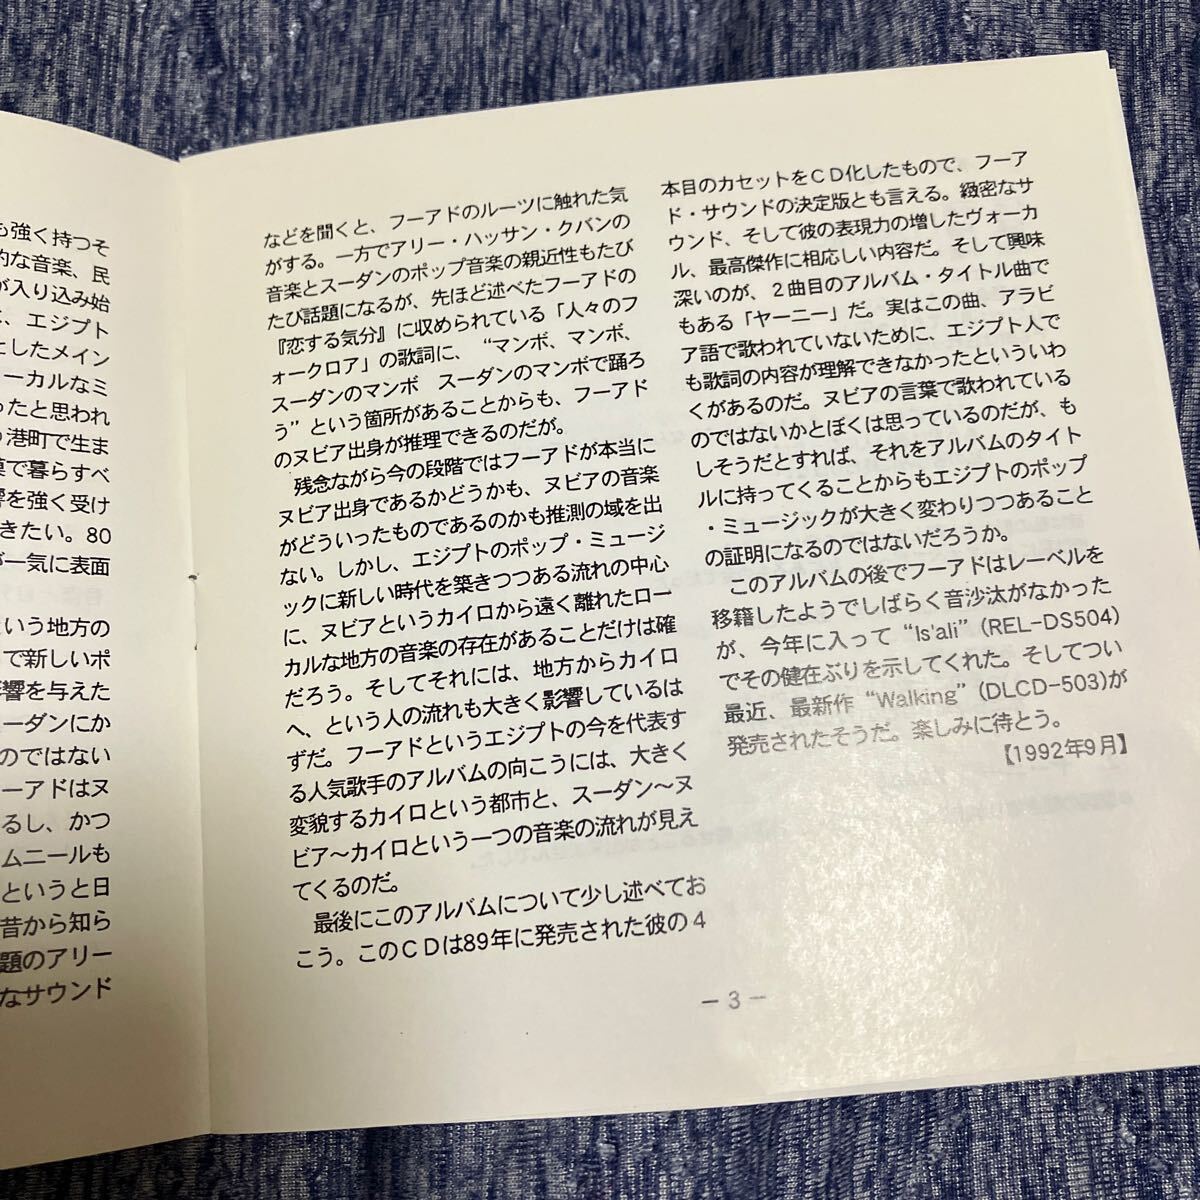 も強く持つそ
的な音楽、民
が入り込み始
、エジプト
としたメイン
ーカルなミ
ったと思われ
港町で生ま
漠で暮らすべ
響を強く受け
きたい。80
が一気に表面
という地方の
で新しいポ
影響を与えた
ーダンにか
のではない
ーアドはヌ
るし、かつ
ムニールも
というと日
昔から知ら
題のアリー
なサウンド
などを聞くと、フーアドのルーツに触れた気
がする。一方でアリー・ハッサン・クバンの
音楽とスーダンのポップ音楽の親近性もたび
たび話題になるが、先ほど述べたフーアドの
『恋する気分』に収められている「人々のフ
ォークロア」の歌詞に、“マンボ、マンボ、
スーダンのマンボ　スーダンのマンボで踊ろ
う”という箇所があることからも、フーアド
のヌビア出身が推理できるのだが。
残念ながら今の段階ではフーアドが本当に
ヌビア出身であるかどうかも、ヌビアの音楽
がどういったものであるのかも推測の域を出
ない。しかし、エジプトのポップ・ミュージ
ックに新しい時代を築きつつある流れの中心
に、ヌビアというカイロから遠く離れたロー
カルな地方の音楽の存在があることだけは確
だろう。そしてそれには、地方からカイロ
へ、という人の流れも大きく影響しているは
ずだ。フーアドというエジプトの今を代表す
る人気歌手のアルバムの向こうには、大きく
変貌するカイロという都市と、スーダン〜ヌ
ビア〜カイロという一つの音楽の流れが見え
てくるのだ。
最後にこのアルバムについて少し述べてお
こう。このＣＤは89年に発売された彼の４
本目のカセットをＣＤ化したもので、フーア
ド・サウンドの決定版とも言える。緻密なサ
ウンド、そして彼の表現力の増したヴォーカ
ル、最高傑作に相応しい内容だ。そして興味
深いのが、２曲目のアルバム・タイトル曲で
もある「ヤーニー」だ。実はこの曲、アラビ
ア語で歌われていないために、エジプト人で
も歌詞の内容が理解できなかったといういわ
くがあるのだ。ヌビアの言葉で歌われている
のではないかとぼくは思っているのだが、も
しそうだとすれば、それをアルバムのタイト
ルに持ってくることからもエジプトのポップ
・ミュージックが大きく変わりつつあること
の証明になるのではないだろうか。
このアルバムの後でフーアドはレーベルを
移籍したようでしばらく音沙汰がなかった
が、今年に入って“Is'ali”（REL-DS504）
でその健在ぶりを示してくれた。そしてつい
最近、最新作“Walking”（DLCD-503)が
発売されたそうだ。楽しみに待とう。
【1992年9月】
－3－